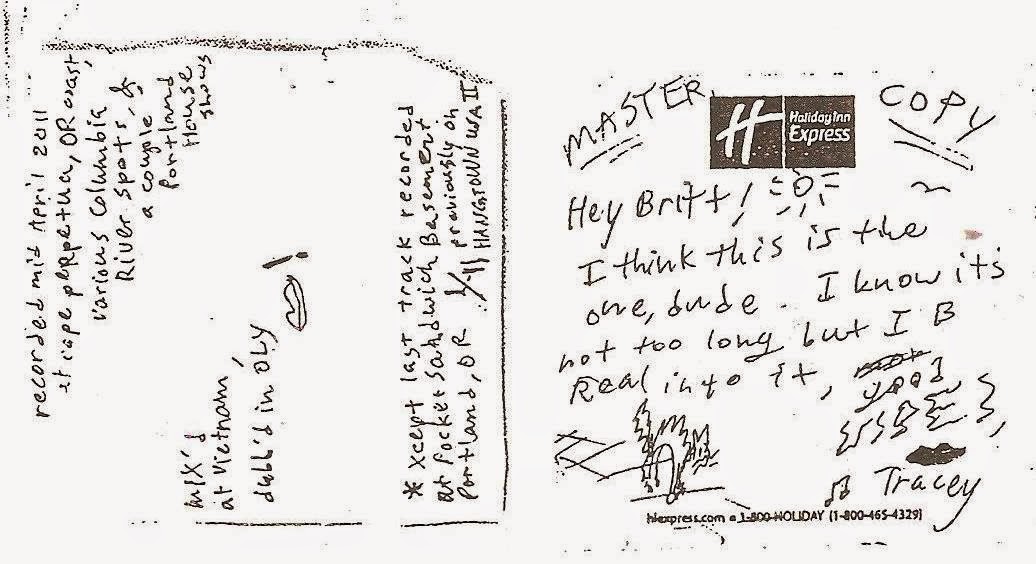 recorded mid April 2011
at cape perpetua, OR coast,
various Columbia
River spots, &
a couple
Portland
House
shows
mix'd
at Vietnam,
dubb'd in OLY
* xcept last track recorded
at Pocket Sandwich Basement
Portland, OR
previously on
HANGTOWN WA II
MASTER
COPY
Holiday Inn
Express
Hey Britt!
I think this is the
one, dude. I know its
not too long but I B
Real into it,
Tracey
hiexpress.com 1-800-HOLIDAY (1-800-465-4329)